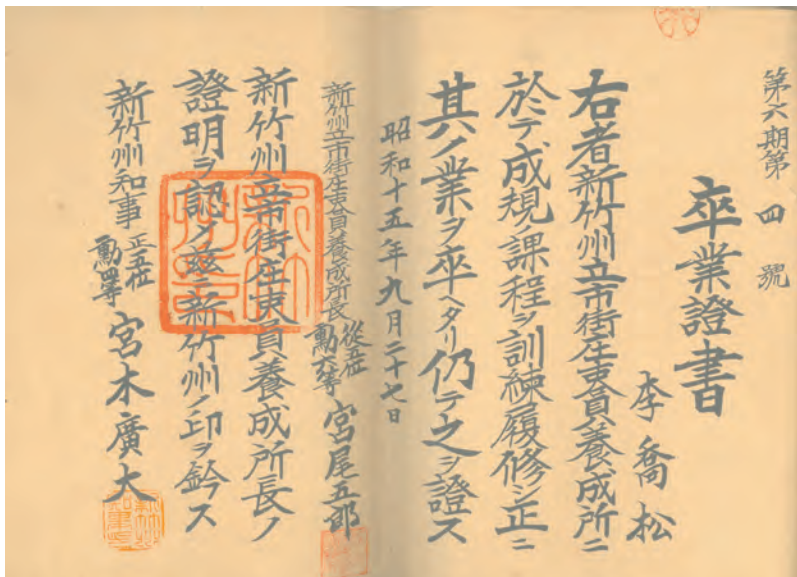 第六期第四號
卒業證書
李喬松
右者新竹州立市街庄吏員養成所ニ
於テ成規ノ課程ヲ訓練履修シ正ニ
其ノ業ヲ卒ヘタリ仍テ之ヲ證ス
昭和十五年九月二十七日
新竹州立市街庄吏員養成所長 從五位 勳六等 宮尾五郎
新竹州立市街庄吏員養成所長ノ
證明ヲ認メ茲ニ新竹州ノ印ヲ鈐ス
新竹州知事 正五位 勳四等 宮木廣大